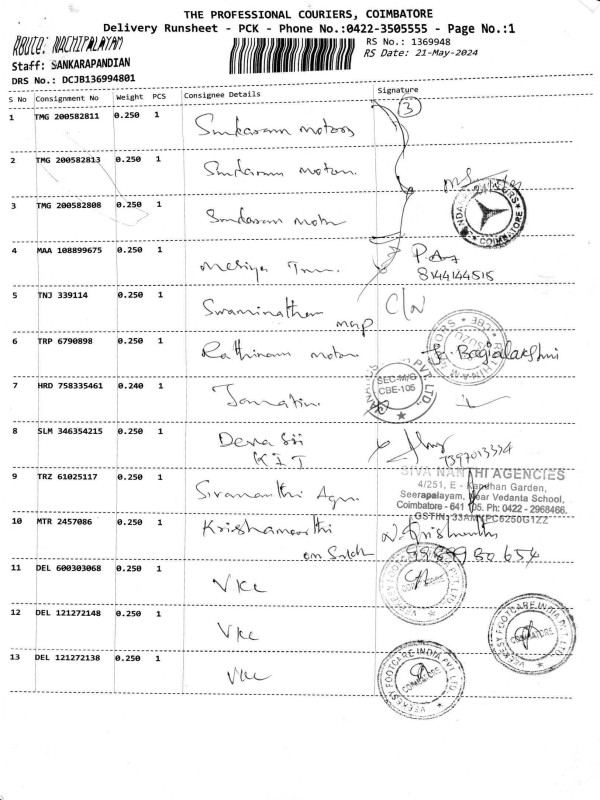 THE PROFESSIONAL COURIERS, COIMBATORE
Delivery Runsheet - PCK - Phone No.:0422-3505555 - Page No.:1
Route: NACHIPALAYAM
RS No.: 1369948
Staff: SANKARAPANDIAN
RS Date: 21-May-2024
DRS No.: DCJB136994801
S No Consignment No Weight PCS Consignee Details Signature
3
1 TMG 200582811 0.250 1 Sundaram motors
2 TMG 200582813 0.250 1 Sundaram motor
3 TMG 200582808 0.250 1 Sundaram motor
COIMBATORE
4 MAA 108899675 0.250 1
8144144515
5 TNJ 339114 0.250 1 Swaminathan C/N
6 TRP 6790898 0.250 1 Rathinam motor Bagialakshmi
RATHINAM MOTORS CBE ISUZU
7 HRD 758335461 0.240 1
SEC-M/G
CBE-105
PVT. LTD.
8 SLM 346354215 0.250 1 Deva Sri
KIT
9 TRZ 61025117 0.250 1 Sivananthi Agn.
SIVA NANTHI AGENCIES
4/251, E - Kandhan Garden,
Seerapalayam, Near Vedanta School,
Coimbatore - 641 105. Ph: 0422 - 2968466.
10 MTR 2457086 0.250 1 Krishamoorthi
11 DEL 600303068 0.250 1 VKC
VEEKESY FOOTCARE INDIA PVT LTD
12 DEL 121272148 0.250 1 VKC
VEEKESY FOOTCARE INDIA PVT LTD COIMBATORE
13 DEL 121272138 0.250 1 VKC
VEEKESY FOOTCARE INDIA PVT LTD. COIMBATORE